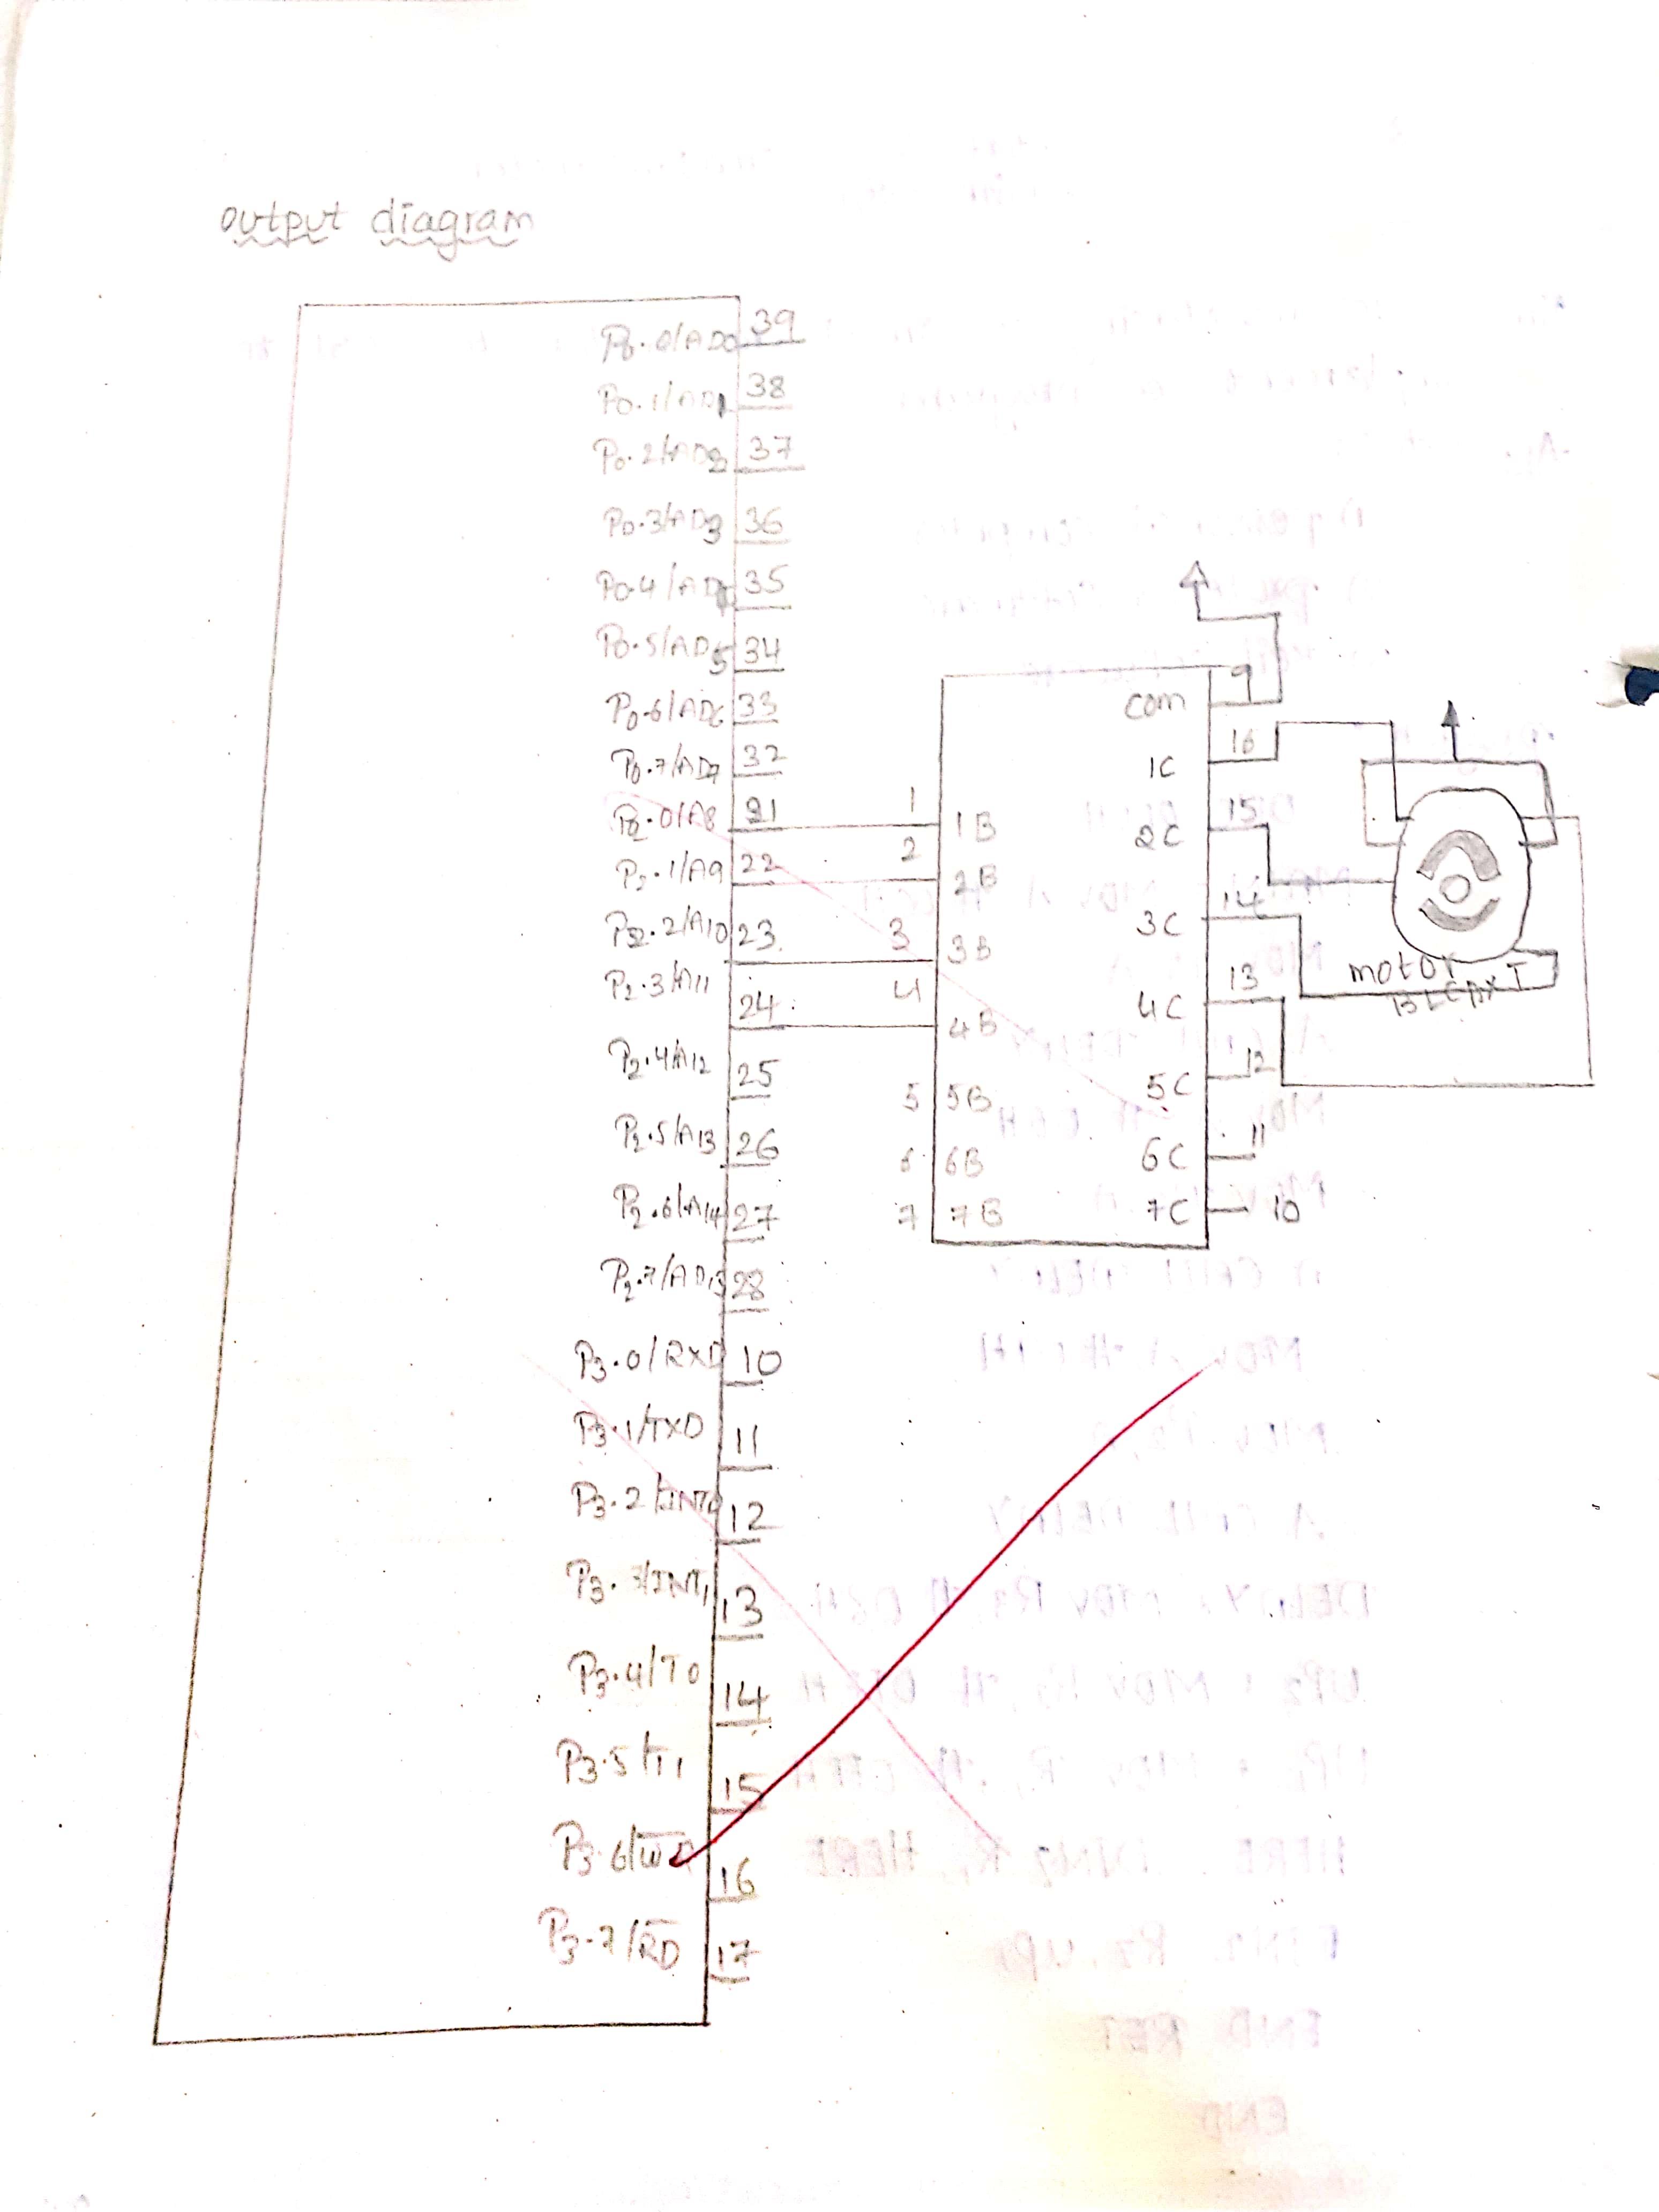 output diagram
P0.0/AD0 39
P0.1/AD1 38
P0.2/AD2 37
P0.3/AD3 36
P0.4/AD4 35
P0.5/AD5 34
P0.6/AD6 33
P0.7/AD7 32
P2.0/A8 21
P2.1/A9 22
P2.2/A10 23
P2.3/A11 24
P2.4/A12 25
P2.5/A13 26
P2.6/A14 27
P2.7/AD15 28
P3.0/RXD 10
P3.1/TXD 11
P3.2/INT0 12
P3.3/INT1 13
P3.4/T0 14
P3.5/T1 15
P3.6/WR 16
P3.7/RD 17
1 1B
2 2B
3 3B
4 4B
5 5B
6 6B
7 7B
COM 9
1C 16
2C 15
3C 14
4C 13
5C 12
6C 11
7C 10
motor